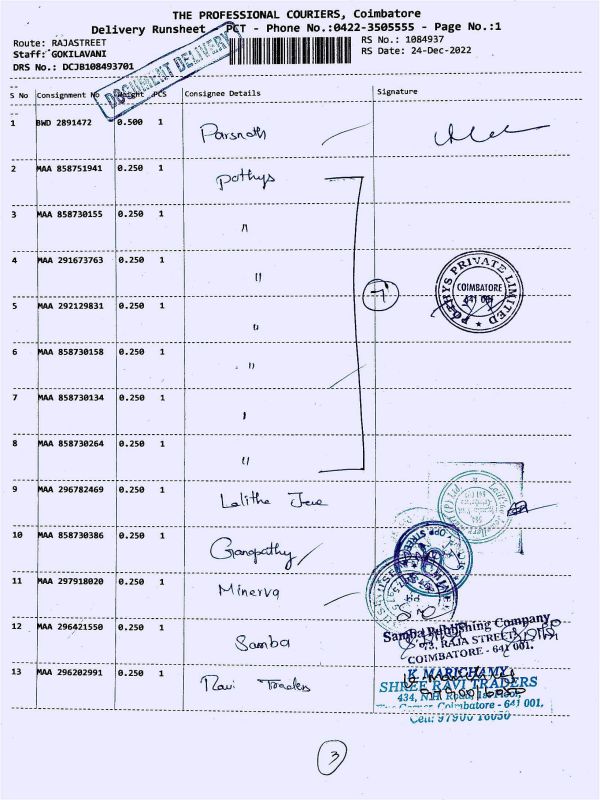 THE PROFESSIONAL COURIERS, Coimbatore
Delivery Runsheet PCT - Phone No.:0422-3505555 - Page No.:1
Route: RAJASTREET
RS No.: 1084937
Staff: GOKILAVANI
RS Date: 24-Dec-2022
DRS No.: DCJB108493701
DOCUMENT DELIVERY
S No Consignment No Weight PCS Consignee Details Signature
1 BWD 2891472 0.500 1 Parsnath
2 MAA 858751941 0.250 1 Pothys
3 MAA 858730155 0.250 1 "
4 MAA 291673763 0.250 1 "
5 MAA 292129831 0.250 1 "
6 MAA 858730158 0.250 1 "
7 MAA 858730134 0.250 1 "
8 MAA 858730264 0.250 1 "
7
POTHYS PRIVATE LIMITED
COIMBATORE
641 001
9 MAA 296782469 0.250 1 Lalitha
10 MAA 858730386 0.250 1 Ganapathy
11 MAA 297918020 0.250 1 Minerva
12 MAA 296421550 0.250 1 Samba
Samba Publishing Company
73, RAJA STREET
COIMBATORE - 641 001.
13 MAA 296202991 0.250 1 Ravi Traders
K MARICHAMY
SHREE RAVI TRADERS
434, N.H. Road, 1st Floor,
Coimbatore - 641 001.
Cell: 97900
3